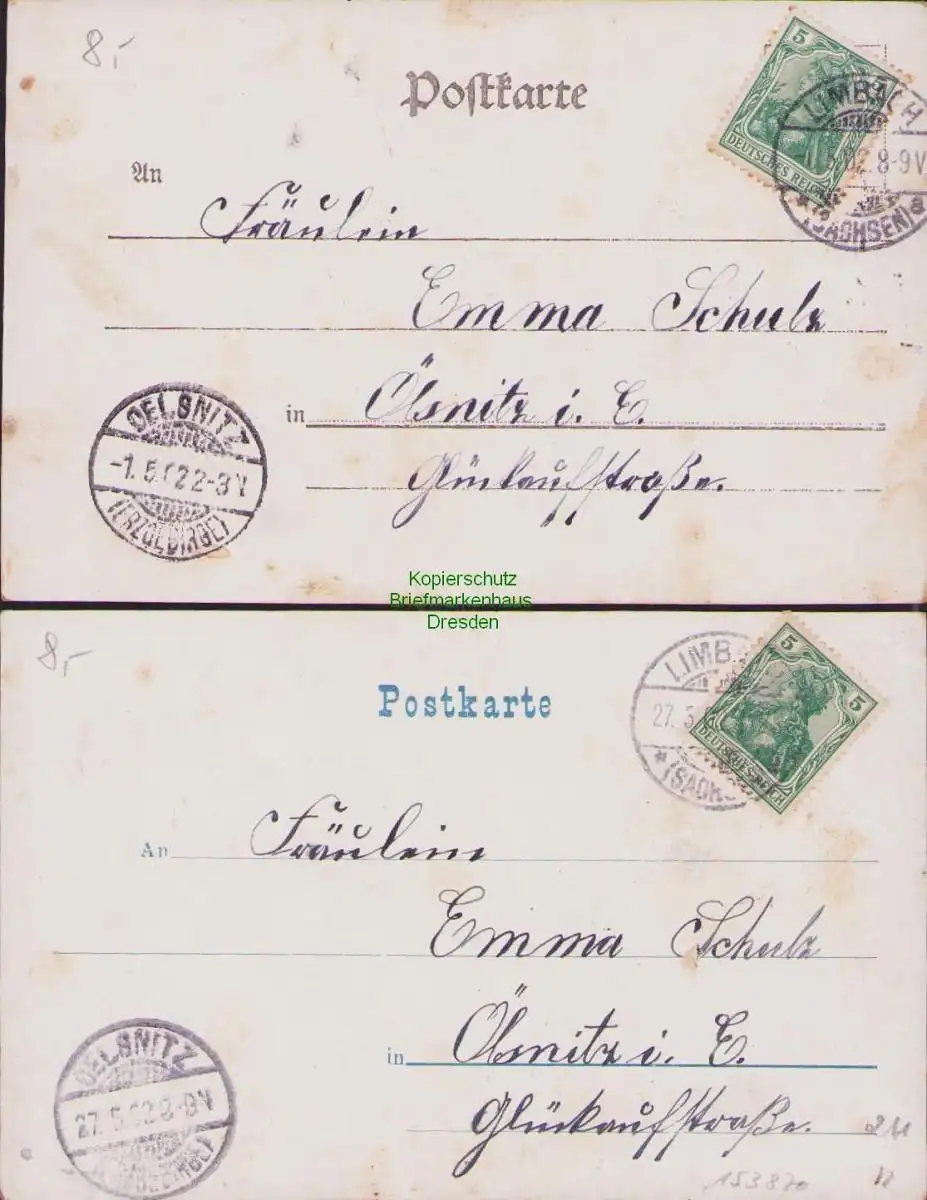 8,-
Postkarte
5
DEUTSCHES REICH
LIMBACH
02 8-9V
(SACHSEN) a
An
Fräulein
Emma Schulz
in Ölsnitz i. E.
Glückaufstraße.
OELSNITZ
-1.5.02 2-3V
(ERZGEBIRGE)
Kopierschutz
Briefmarkenhaus
Dresden
8,-
Postkarte
LIMBA
27. 5
* (SACHS
5
5
DEUTSCHES REICH
An Fräulein
Emma Schulz
in Ölsnitz i. E.
Glückaufstraße.
OELSNITZ
27.5.02 8-9V
(ERZGEBIRGE)
153870